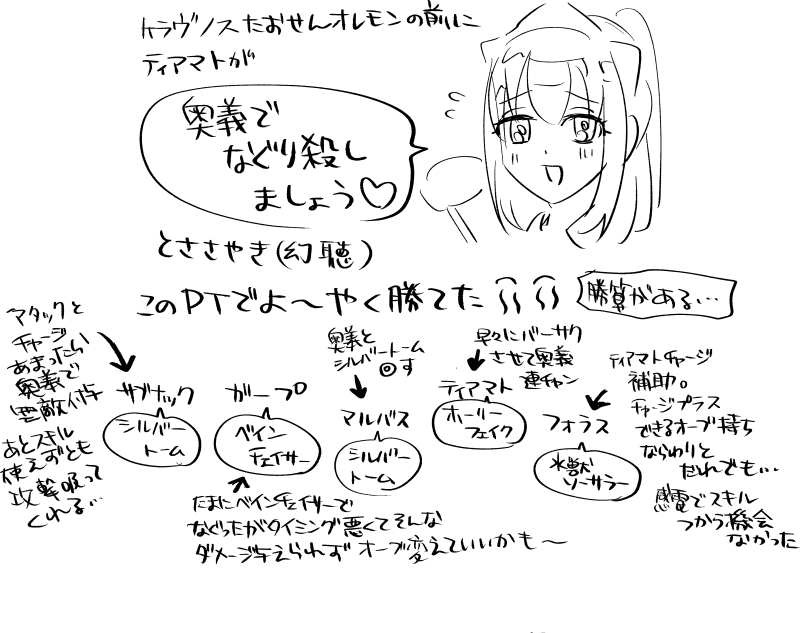 ケラヴノスたおせんオレモンの前に
ティアマトが
奥義で
なぐり殺し
ましょう♡
とささやき(幻聴)
このPTでよ〜やく勝てた
勝算がある…
アタックと
チャージ
あまったい
奥義で
無敵付与
あとスキル
使えずとも
攻撃吸って
くれる…
サブナック
シルバー
トーム
ガープ
ベイン
チェイサー
奥義と
シルバートーム
◎す
マルバス
シルバー
トーム
早々にバーサク
させて奥義
連チャン
ティアマト
ホーリー
フェイク
フォラス
氷獣
ソーサラー
ティアマトチャージ
補助。
チャージプラス
できるオーブ持ち
ならわりと
だれでも…
感電でスキル
つかう機会
なかった
たまにベインチェイサーで
なぐったがタイミング悪くてそんな
ダメージ与えられず オーブ変えていいかも〜